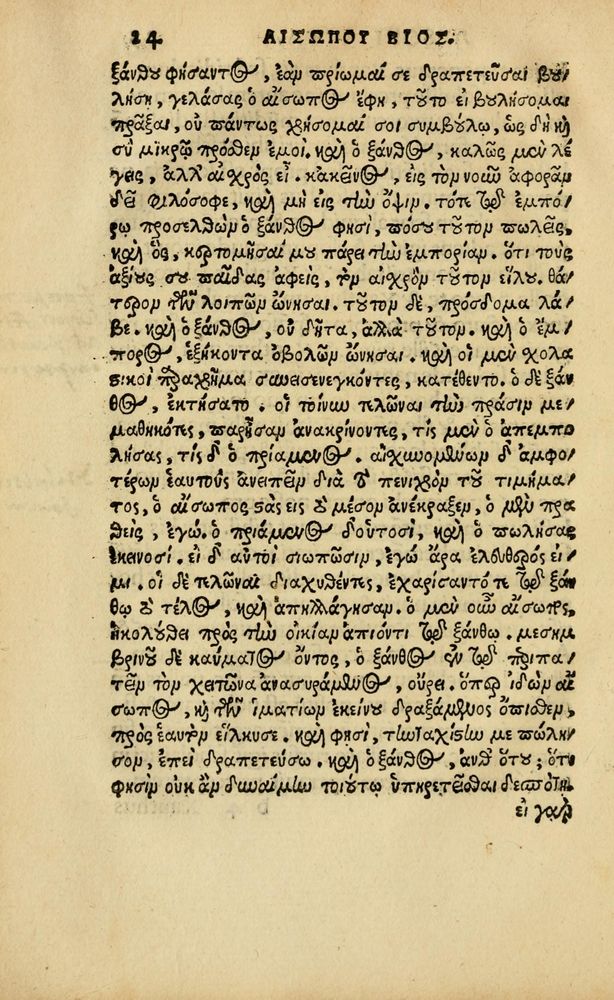 24 ΑΙΣΩΠΟΥ ΒΙΟΣ.
ξάνθου φήσαντος, ἐὰν πρίωμαί σε δραπετεῦσαι βου/
λήσῃ, γελάσας ὁ αἴσωπος ἔφη, τοῦτο εἰ βουλήσομαι
πρᾶξαι, οὐ πάντως χρήσομαί σοι συμβούλῳ, ὡς δὴ καὶ
σὺ μικρῷ πρόσθεν ἐμοί. καὶ ὁ ξάνθος, καλῶς μὲν λέ
γεις, ἀλλ' αἰσχρὸς εἶ. κἀκεῖνος, εἰς τὸν νοῦν ἀφορᾶν
δεῖ φιλόσοφε, καὶ μὴ εἰς τὴν ὄψιν. τότε τῷ ἐμπό/
ρῳ προσελθὼν ὁ ξάνθος φησί, πόσου τοῦτον πωλεῖς,
καὶ ὅς, κερτομῆσαί μου πάρει τὴν ἐμπορίαν. ὅτι τοὺς
ἀξίους σου παῖδας ἀφείς, τὸν αἰσχρὸν τοῦτον εἵλου. θά/
τερον τῶν λοιπῶν ὤνησαι. τοῦτον δὲ, πρόσδομα λά/
βε. καὶ ὁ ξάνθος, οὐ δῆτα, ἀλλὰ τοῦτον. καὶ ὁ ἔμ/
πορος, ἑξήκοντα ὀβολῶν ὤνησαι. καὶ οἱ μὲν σχολα
στικοὶ παραχρῆμα συνεισενεγκόντες, κατέθεντο. ὁ δὲ ξάν
θος, ἐκτήσατο. οἱ τοίνυν τελῶναι τὴν πρᾶσιν με/
μαθηκότες, παρῆσαν ἀνακρίνοντες, τίς μὲν ὁ ἀπεμπο
λήσας, τίς δ' ὁ πριάμενος. αἰσχυνομένων δ' ἀμφο/
τέρων ἑαυτοὺς ἀνειπεῖν διὰ τὸ πενιχρὸν τοῦ τιμήμα/
τος, ὁ αἴσωπος στὰς εἰς τὸ μέσον ἀνέκραξεν, ὁ μὲν πρα
θείς, ἐγώ. ὁ πριάμενος δ' οὑτοσί, καὶ ὁ πωλήσας
ἐκεινοσί. εἰ δ' αὐτοὶ σιωπῶσιν, ἐγὼ ἄρα ἐλεύθερός εἰ/
μι. οἱ δὲ τελῶναι διαχυθέντες, ἐχαρίσαντό τε τῷ ξάν
θῳ τὸ τέλος, καὶ ἀπηλλάγησαν. ὁ μὲν οὖν αἴσωπος,
ἠκολούθει πρὸς τὴν οἰκίαν ἀπιόντι τῷ ξάνθῳ. μεσημ
βρινοῦ δὲ καύματος ὄντος, ὁ ξάνθος ἐν τῷ περιπα/
τεῖν τὸν χιτῶνα ἀνασυράμενος, οὔρει. ὅπερ ἰδὼν αἴ
σωπος, καὶ τῶν ἱματίων ἐκείνου δραξάμενος ὄπισθεν,
πρὸς ἑαυτὸν εἵλκυσε. καὶ φησί, τὴν ταχίστην με πώλη/
σον, ἐπεὶ δραπετεύσω. καὶ ὁ ξάνθος, ἀνθ' ὅτου; ὅτι
φησὶν οὐκ ἂν δυναίμην τοιούτῳ ὑπηρετεῖσθαι δεσπότῃ.
εἰ γὰρ